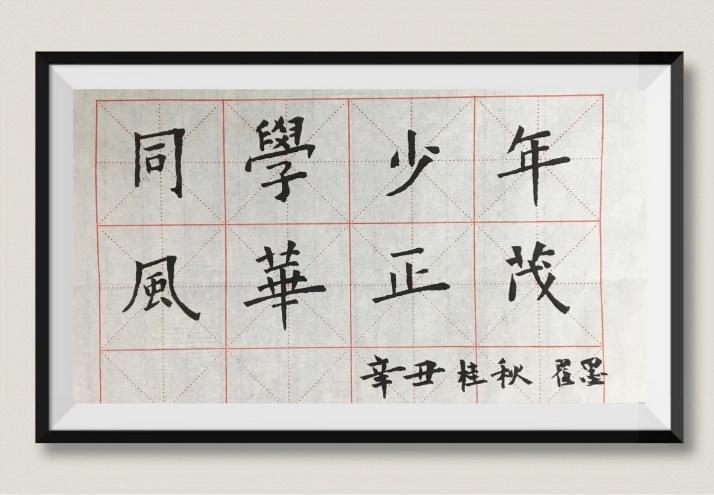 同學少年
風華正茂
辛丑桂秋 墨